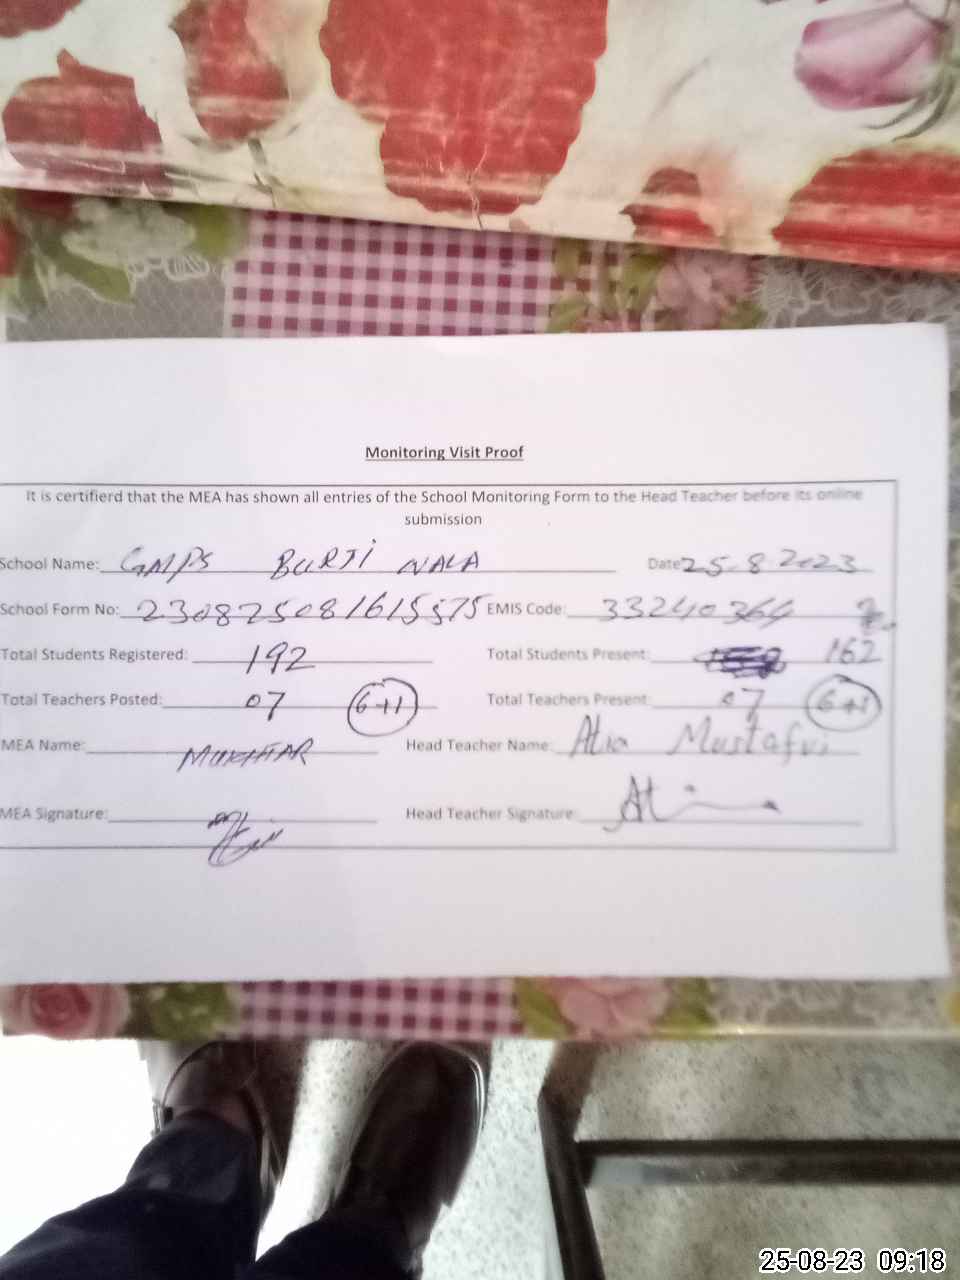 Monitoring Visit Proof
It is certifierd that the MEA has shown all entries of the School Monitoring Form to the Head Teacher before its online
submission
School Name: GMPS BURJI NALA Date 25-8-2023
School Form No: 230825081615575 EMIS Code: 33240364
Total Students Registered: 192 Total Students Present: 162
Total Teachers Posted: 07 (6+1) Total Teachers Present: 07 (6+1)
MEA Name: MUKHTAR Head Teacher Name: Atia
MEA Signature: Head Teacher Signature:
25-08-23 09:18